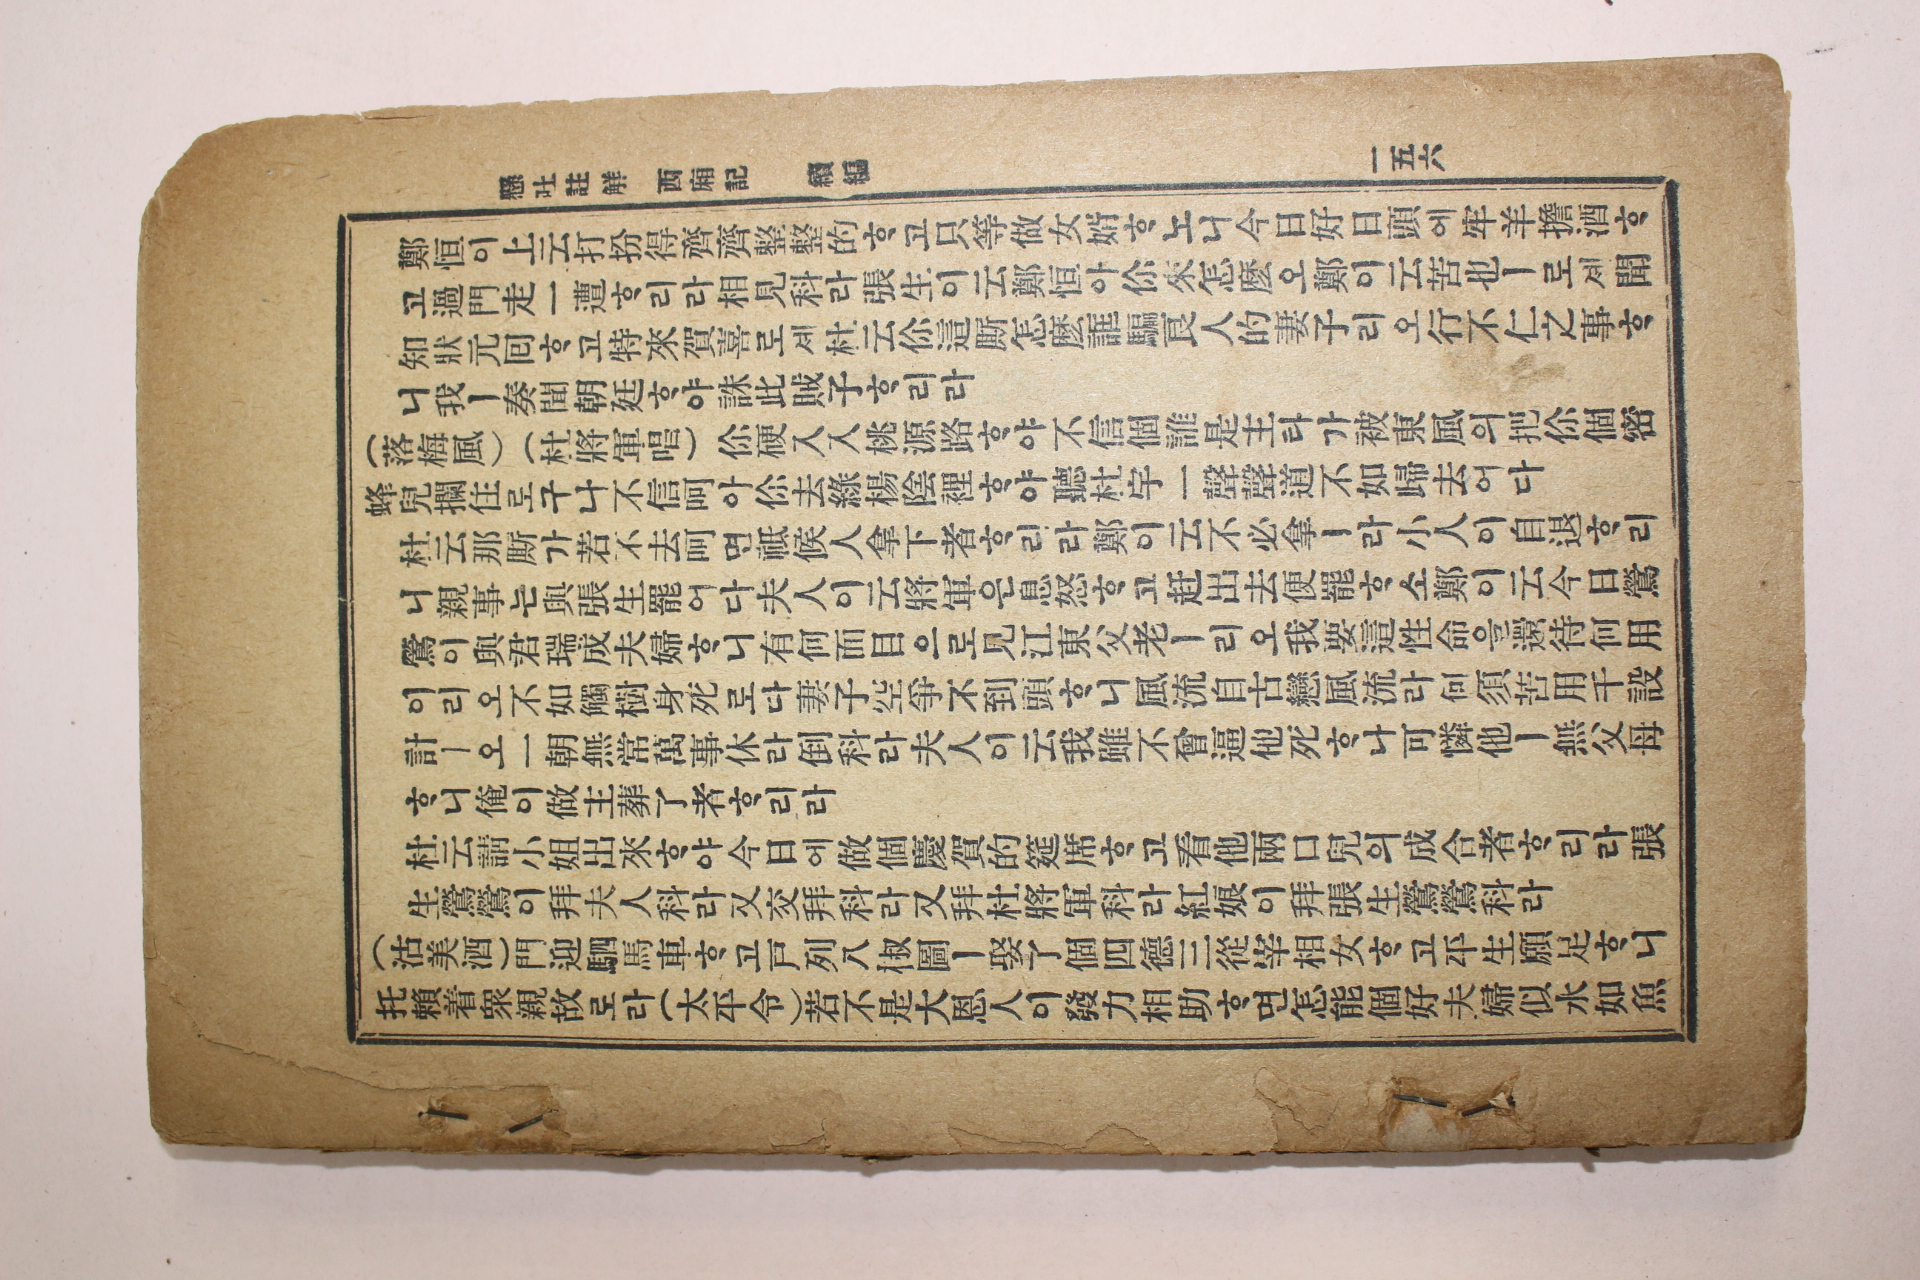 懸吐註解 西廂記 續編 一五六
鄭恒이上云打扮得齊齊整整的ᄒᆞ고只等做女婿ᄒᆞ노니今日好日頭에牢羊擔酒ᄒᆞ
고過門走一遭ᄒᆞ리라相見科라張生이云鄭恒아你來怎麽오鄭이云苦也ㅣ로셰聞
知狀元回ᄒᆞ고特來賀喜로셰杜云你這厮怎麽誆騙良人的妻子리오行不仁之事ᄒᆞ
니我ㅣ奏聞朝廷ᄒᆞ야誅此賊子ᄒᆞ리라
(落梅風)(杜將軍唱)你硬入入桃源路ᄒᆞ야不信個誰是主라가被東風의把你個密
蜂兒攔住로구나不信呵아你去綠楊陰裡ᄒᆞ야聽杜宇一聲聲道不如歸去어다
杜云那厮가若不去呵면祗候人拿下者ᄒᆞ리라鄭이云不必拿ㅣ라小人이自退ᄒᆞ리
니親事는與張生罷어다夫人이云將軍은息怒ᄒᆞ고赶出去便罷ᄒᆞ소鄭이云今日鶯
鶯이與君瑞成夫婦ᄒᆞ니有何面目으로見江東父老ㅣ리오我要這性命을還待何用
이리오不如觸樹身死로다妻子空爭不到頭ᄒᆞ니風流自古戀風流라何須苦用千設
計ㅣ오一朝無常萬事休라倒科라夫人이云我雖不曾逼他死ᄒᆞ나可憐他ㅣ無父母
ᄒᆞ니俺이做主葬了者ᄒᆞ리라
杜云請小姐出來ᄒᆞ야今日에做個慶賀的筵席ᄒᆞ고看他兩口兒의成合者ᄒᆞ리라張
生鶯鶯이拜夫人科라又交拜科라又拜杜將軍科라紅娘이拜張生鶯鶯科라
(沽美酒)門迎駟馬車ᄒᆞ고戶列八椒圖ㅣ娶了個四德三從宰相女ᄒᆞ고平生願足ᄒᆞ니
托賴着衆親故로라(太平令)若不是大恩人이發力相助ᄒᆞ면怎能個好夫婦似水如魚